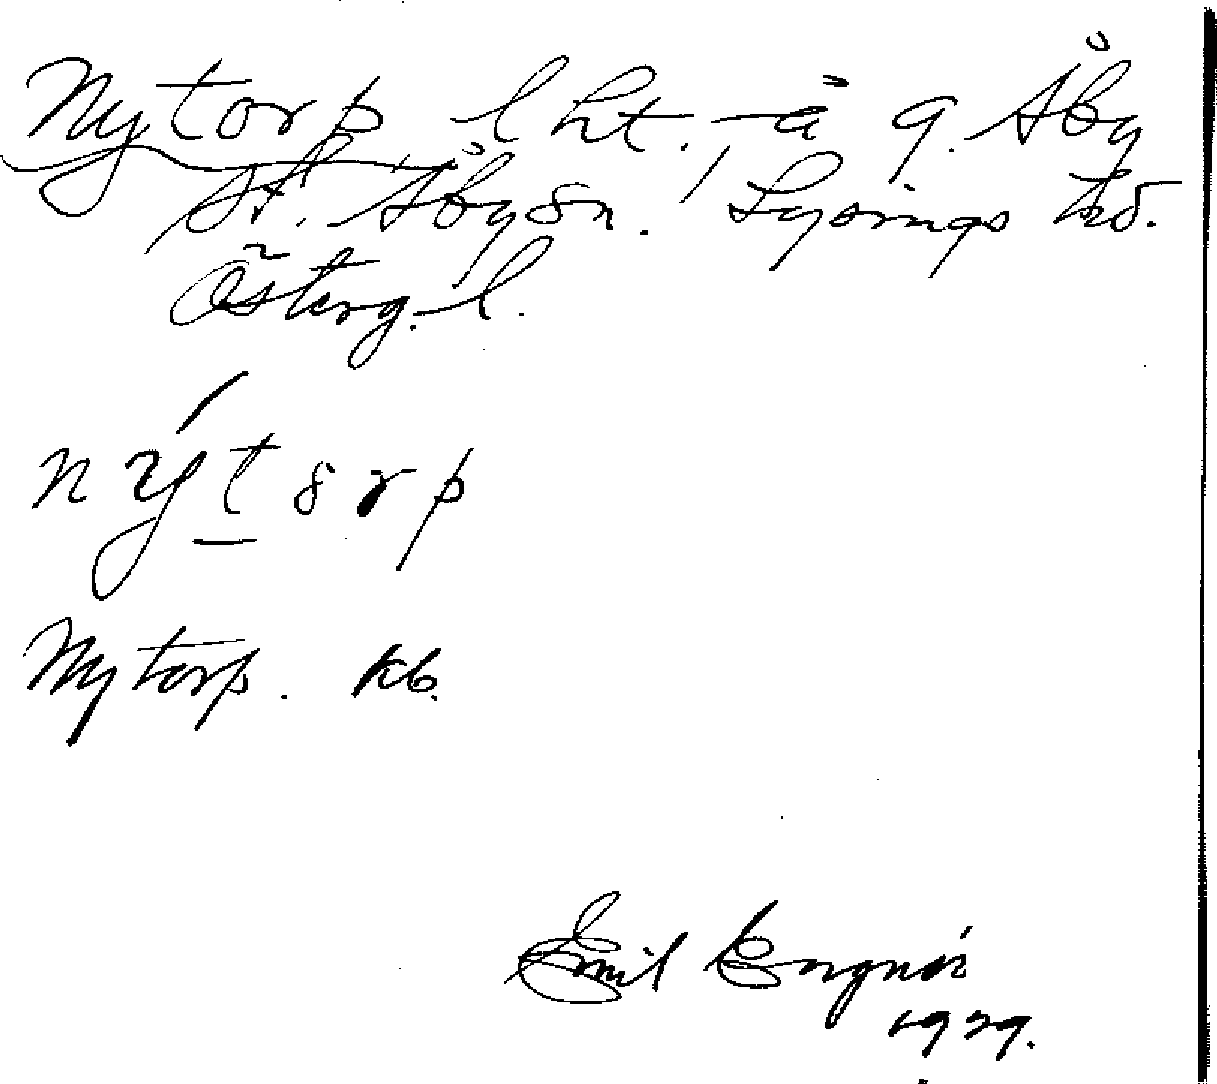 Nytorp lht. å g. Åby
St. Åby sn. Lysings hd.
Österg. l.
nýtorp
Nytorp. kb.
Emil
1929.